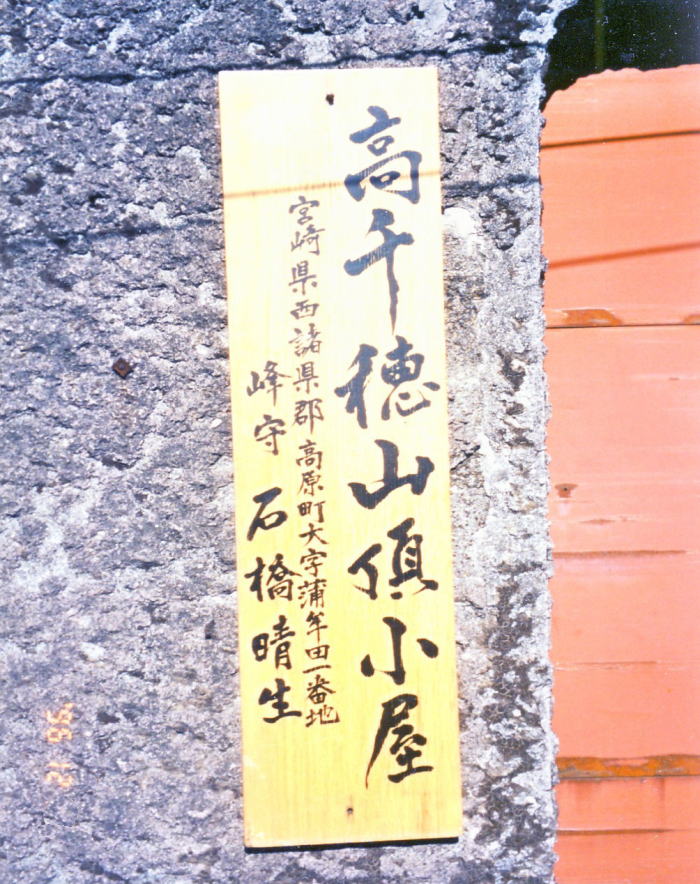 高千穂山頂小屋
宮崎県西諸県郡高原町大字蒲牟田一番地
峰守 石橋晴生